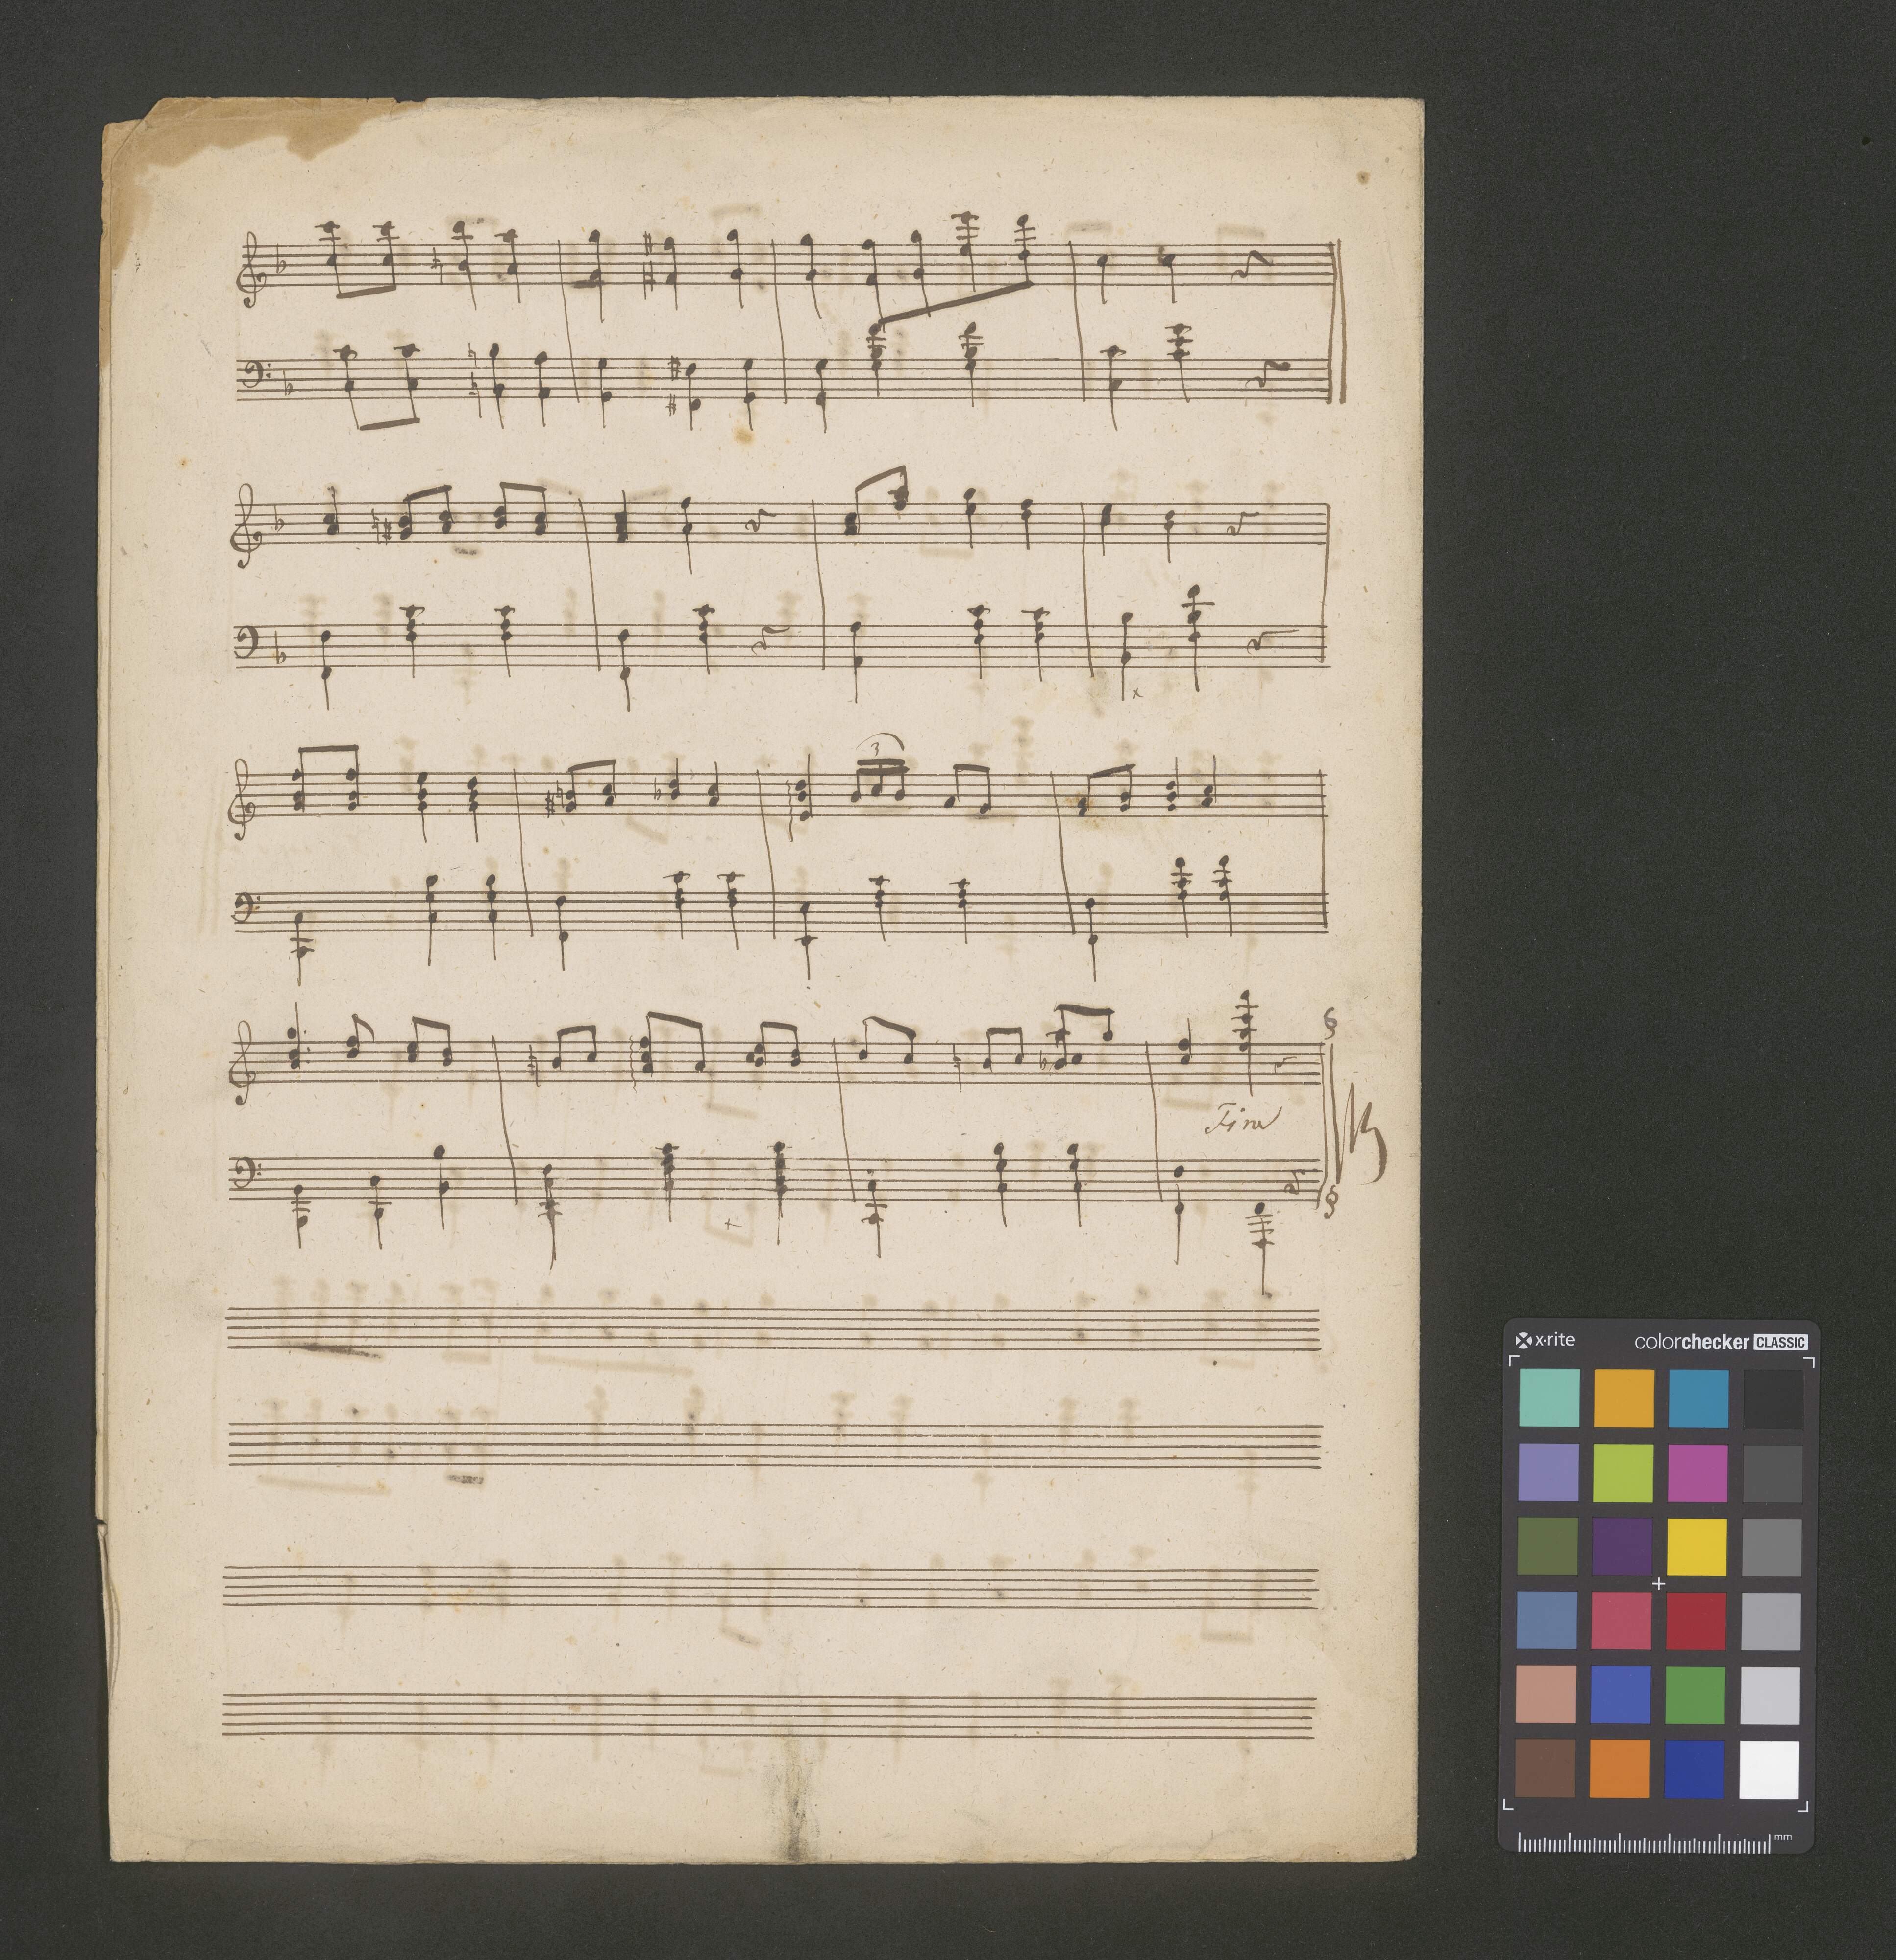 3
Fine
x-rite
colorchecker CLASSIC
mm